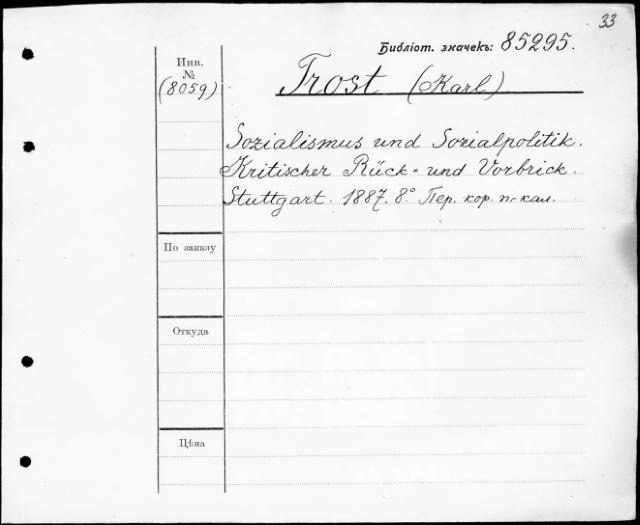 33
Библіот. значекъ: 85295.
Инв.
№
(8059)
Trost (Karl)
Sozialismus und Sozialpolitik.
Kritischer Rück- und Vorbrick.
Stuttgart. 1887. 8° Пер. кор. п. кал.
По заказу
Откуда
Цѣна